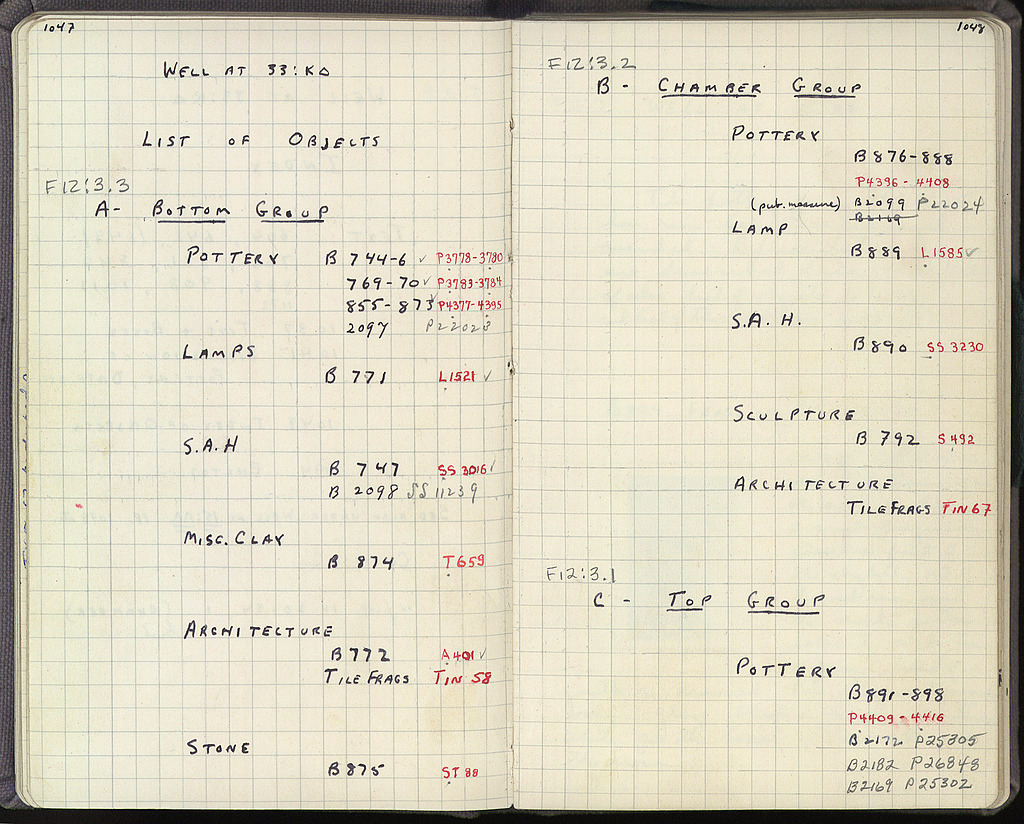 1047
WELL AT 33:ΚΔ
LIST OF OBJECTS
F12:3.3
A- BOTTOM GROUP
POTTERY B 744-6 ✓ P3778-3780
769-70 ✓ P3783-3784
855-873 ✓ P4377-4395
2097 P22023
LAMPS
B 771 L1521 ✓
S.A.H
B 747 SS 3016 ✓
B 2098 SS 11239
MISC. CLAY
B 874 T659
ARCHITECTURE
B 772 A401 ✓
TILE FRAGS TIN 58
STONE
B 875 ST 88
1048
F12:3.2
B - CHAMBER GROUP
POTTERY
B 876-888
P4396 - 4408
(put. measure) B2099 P22024
B2169
LAMP
B 889 L1585 ✓
S.A. H.
B 890 SS 3230
SCULPTURE
B 792 S 492
ARCHITECTURE
TILE FRAGS TIN 67
F12:3.1
C - TOP GROUP
POTTERY
B 891-898
P4409-4416
B2172 P25305
B2182 P26848
B2169 P25302